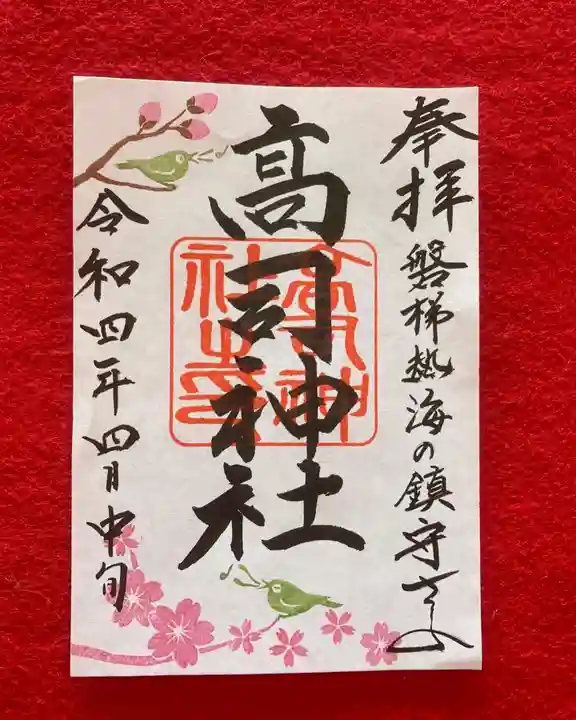 奉拝 磐梯熱海の鎮守さま
高司神社
令和四年四月中旬